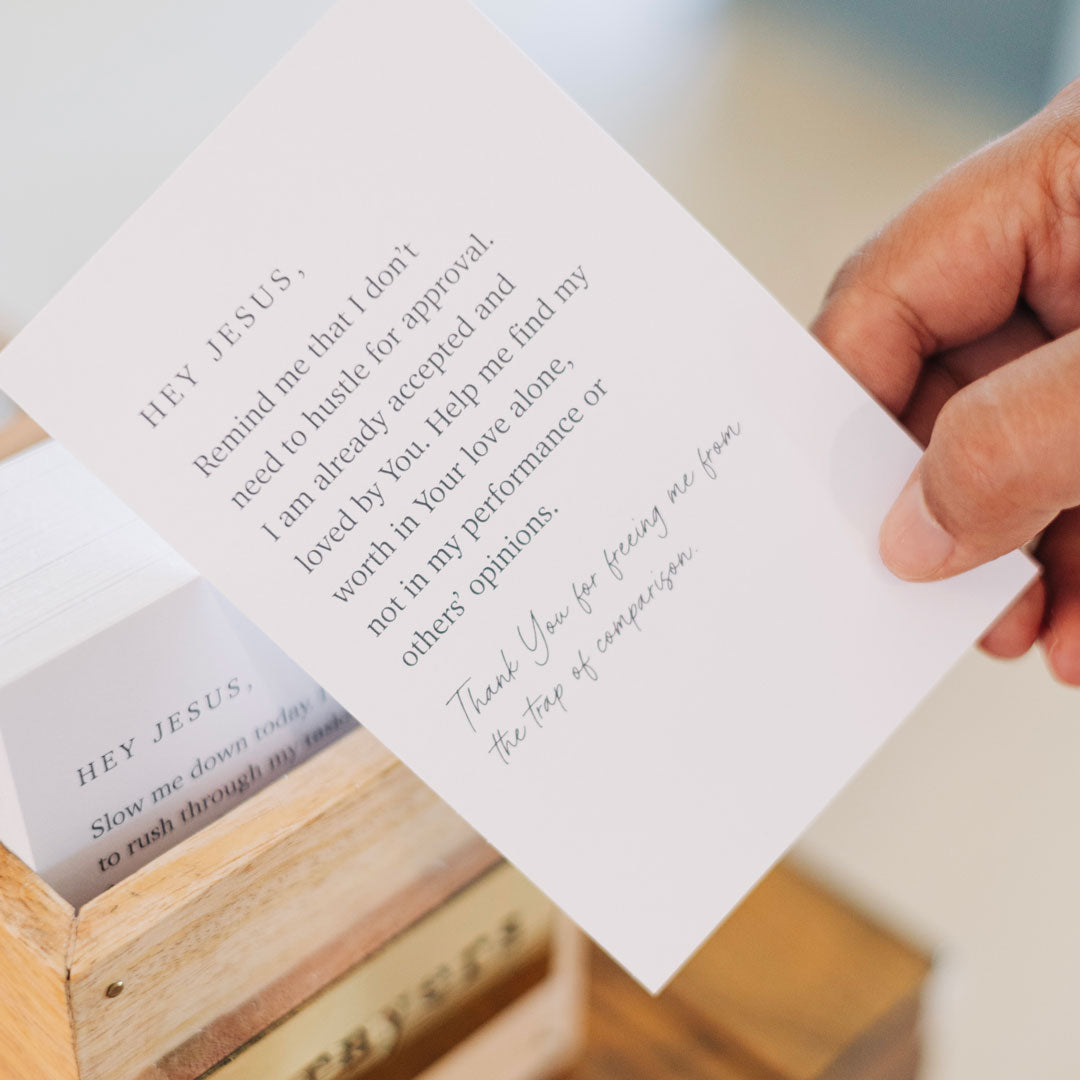 HEY JESUS,
Remind me that I don't
need to hustle for approval.
I am already accepted and
loved by You. Help me find my
worth in Your love alone,
not in my performance or
others' opinions.
Thank You for freeing me from
the trap of comparison.
HEY JESUS,
Slow me down today.
to rush through my